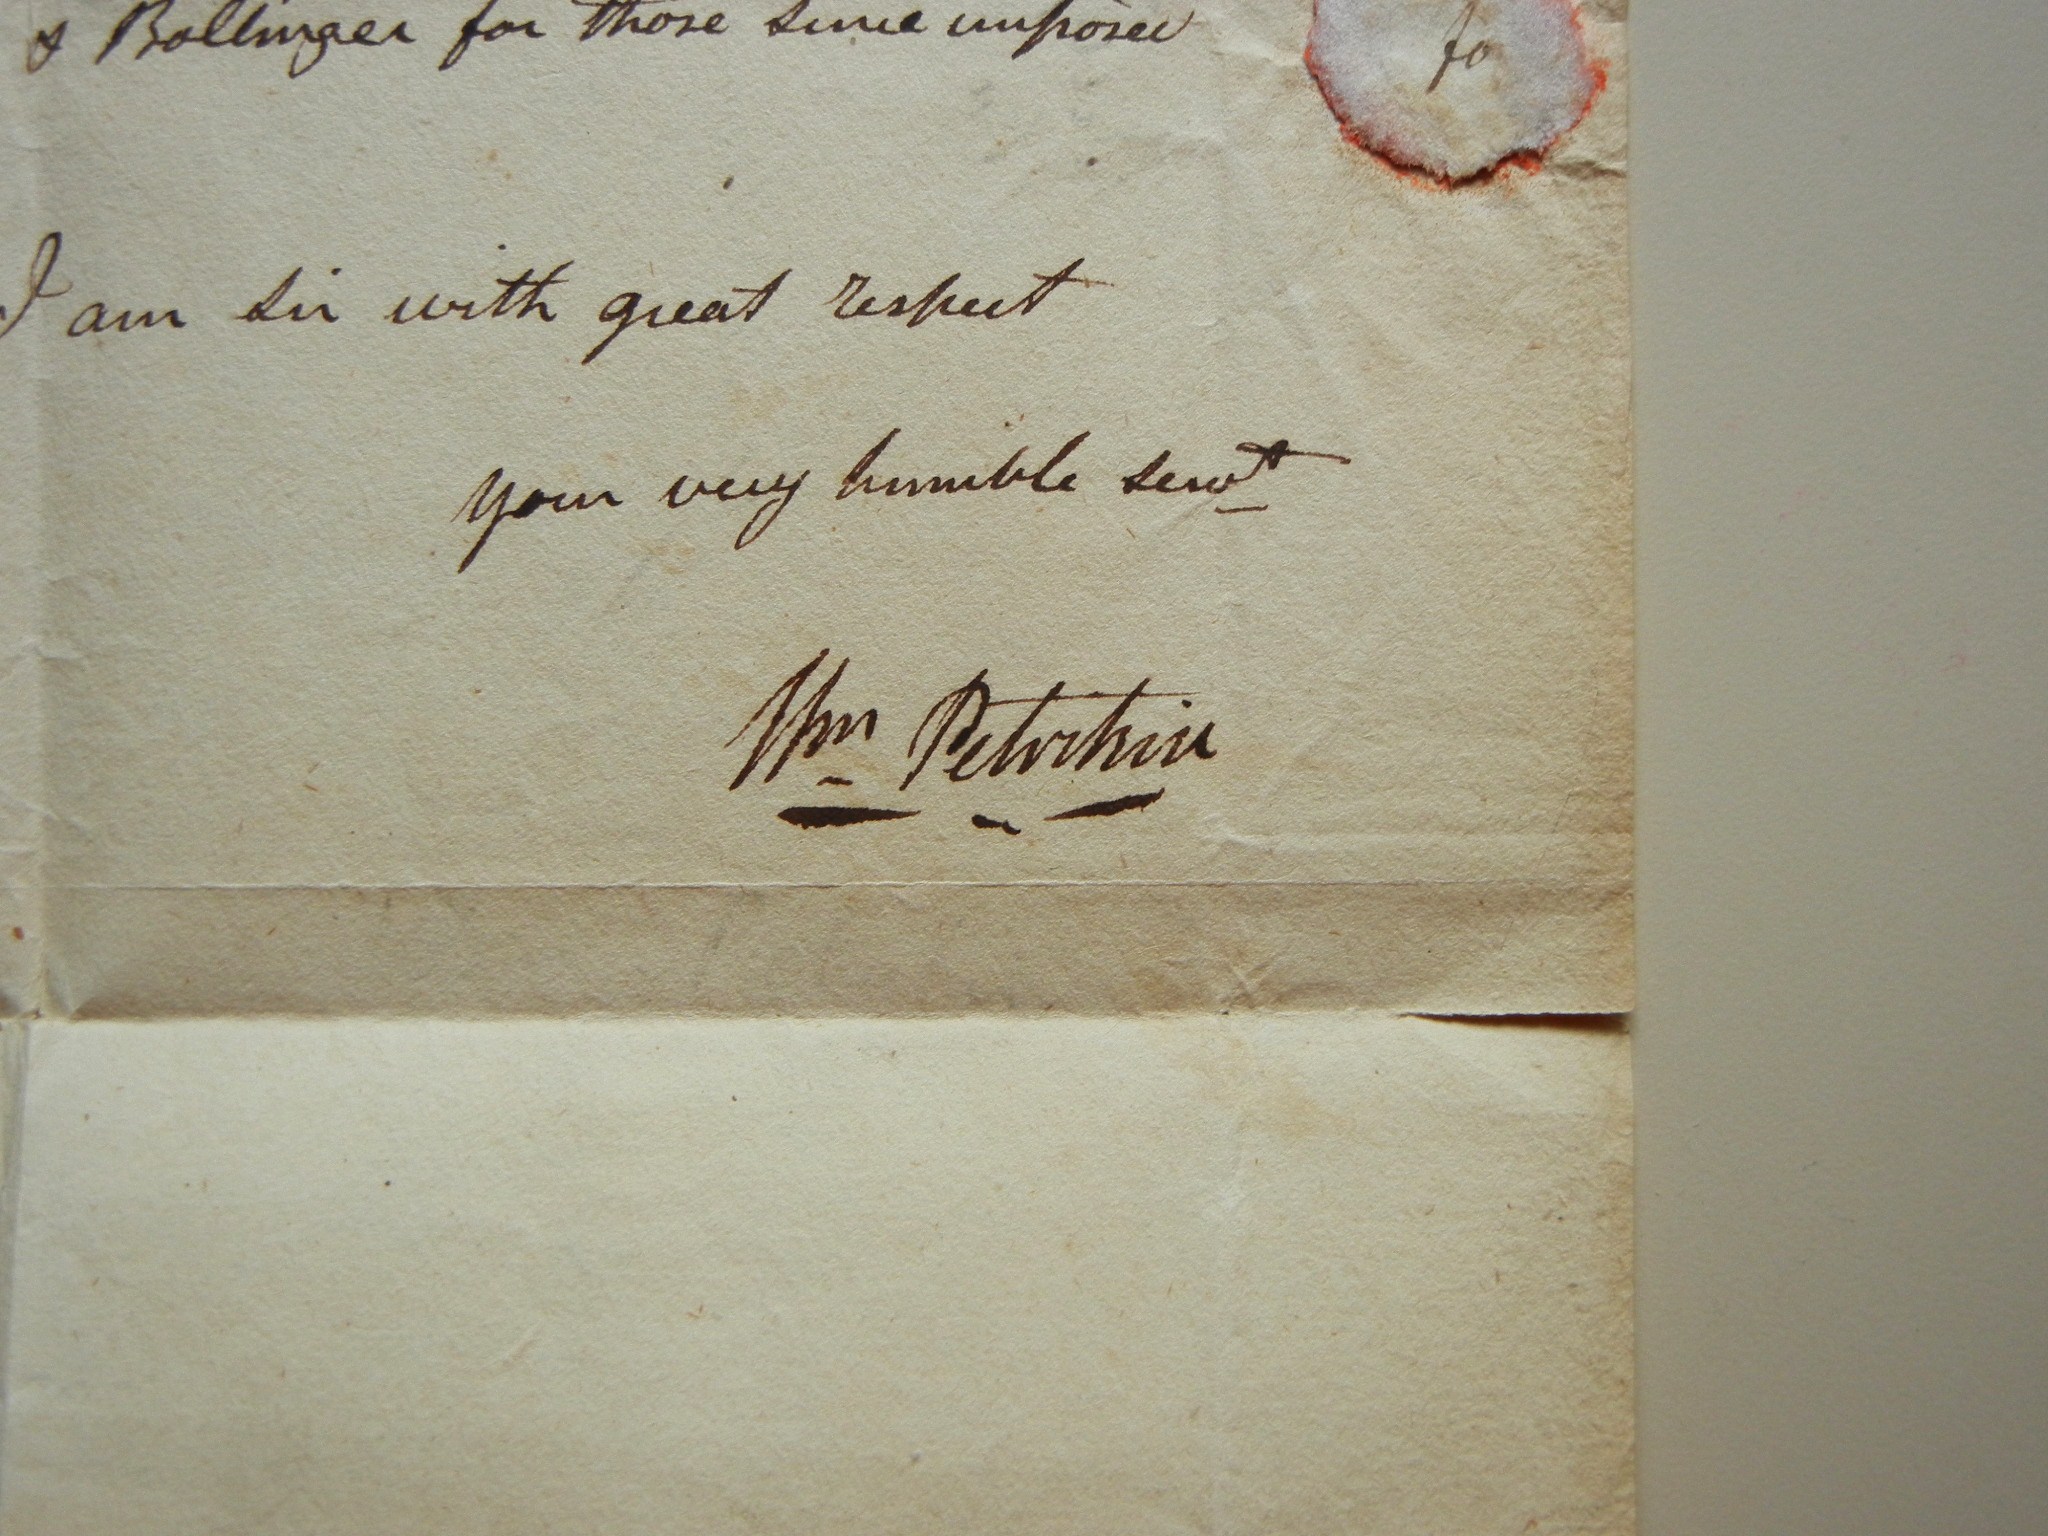 & Bollinger for those since imposed
fo
I am sir with great respect
your very humble servt
Wm Petrikin